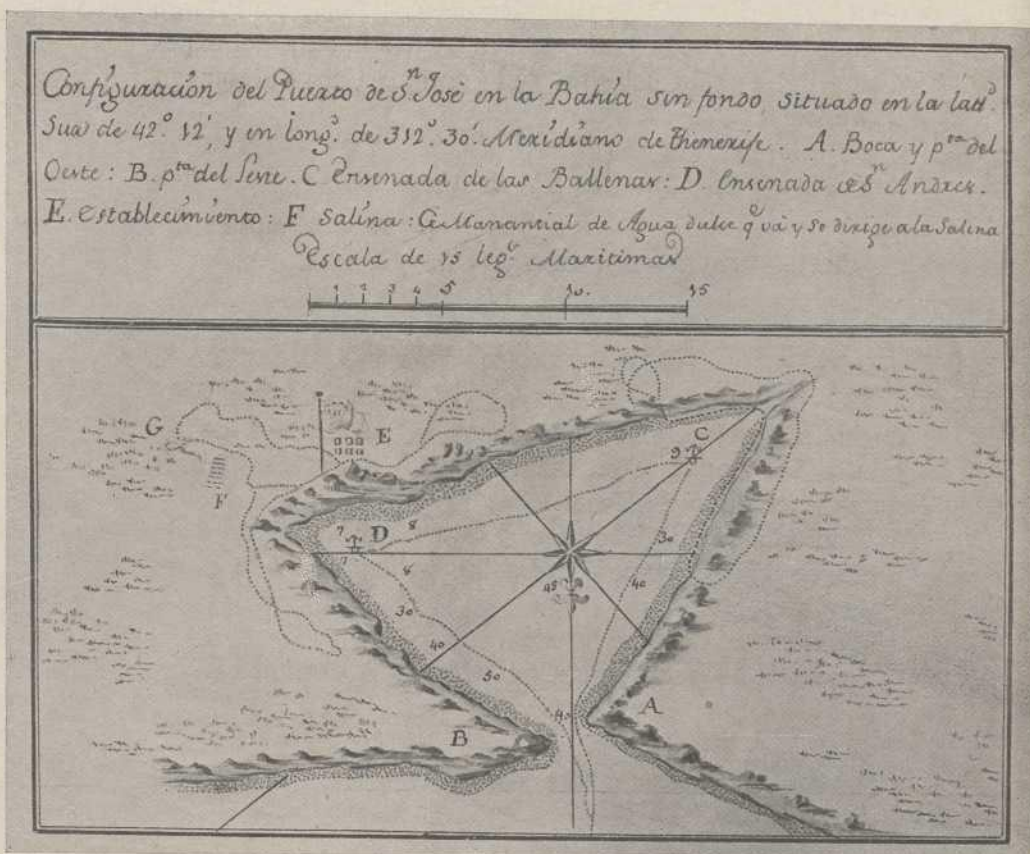 Configuración del Puerto de S.n José en la Bahía sin fondo, situado en la latt.d
Sur de 42.° 12', y en long.d de 312.° 30.' Meridiano de Thenerife. A. Boca y p.ta del
Oeste: B. p.ta del Leste. C. Ensenada de las Ballenas: D. Ensenada de S.n Andres.
E. establecimiento: F Salina: G. Manantial de Agua dulce q.e vá y se dirige a la Salina
Escala de 15 leg.s Maritimas
1 2 3 4 5 10. 15
G E C
9
F
7 D 8
7
8 30
45 40
30
40
50
A
40
B